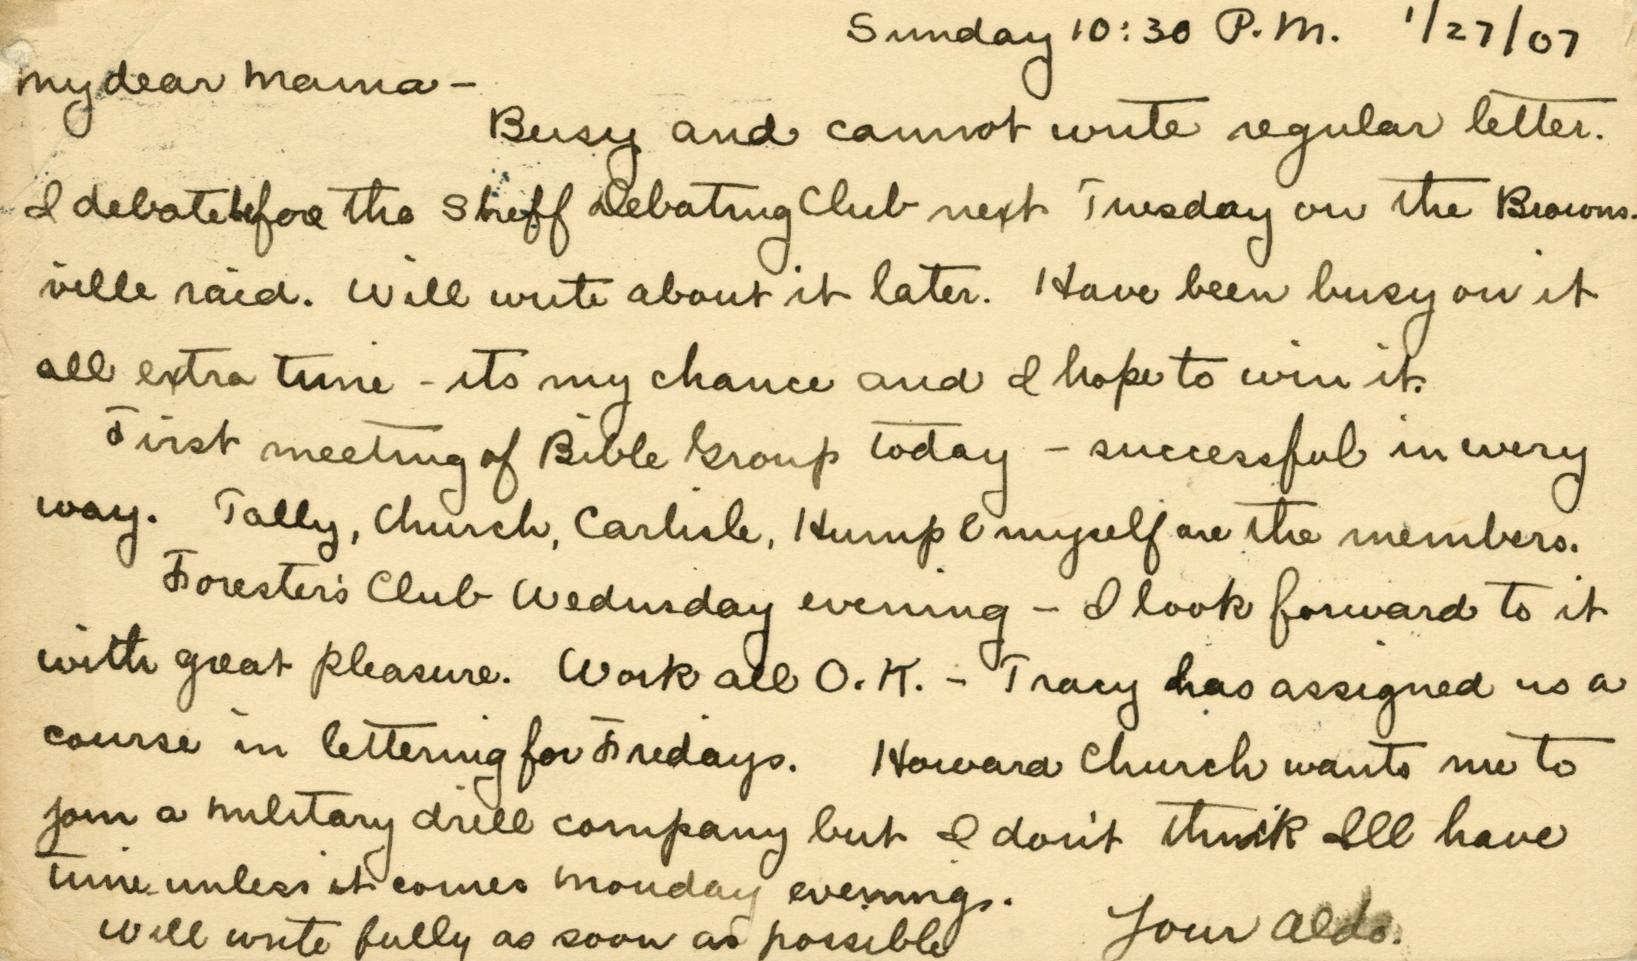 Sunday 10:30 P.M. 1/27/07
My dear Mama -
Busy and cannot write regular letter.
I debate before the Sheff Debating Club next Tuesday on the Browns-
ville raid. Will write about it later. Have been busy on it
all extra time - its my chance and I hope to win it.
First meeting of Bible Group today - successful in every
way. Tally, Church, Carlisle, Hump & myself are the members.
Forester's Club Wednesday evening - I look forward to it
with great pleasure. Work all O.K. - Tracy has assigned us a
course in lettering for Fridays. Howard Church wants me to
join a military drill company but I don't think Ill have
time unless it comes Monday evenings.
Will write fully as soon as possible
Your Aldo.